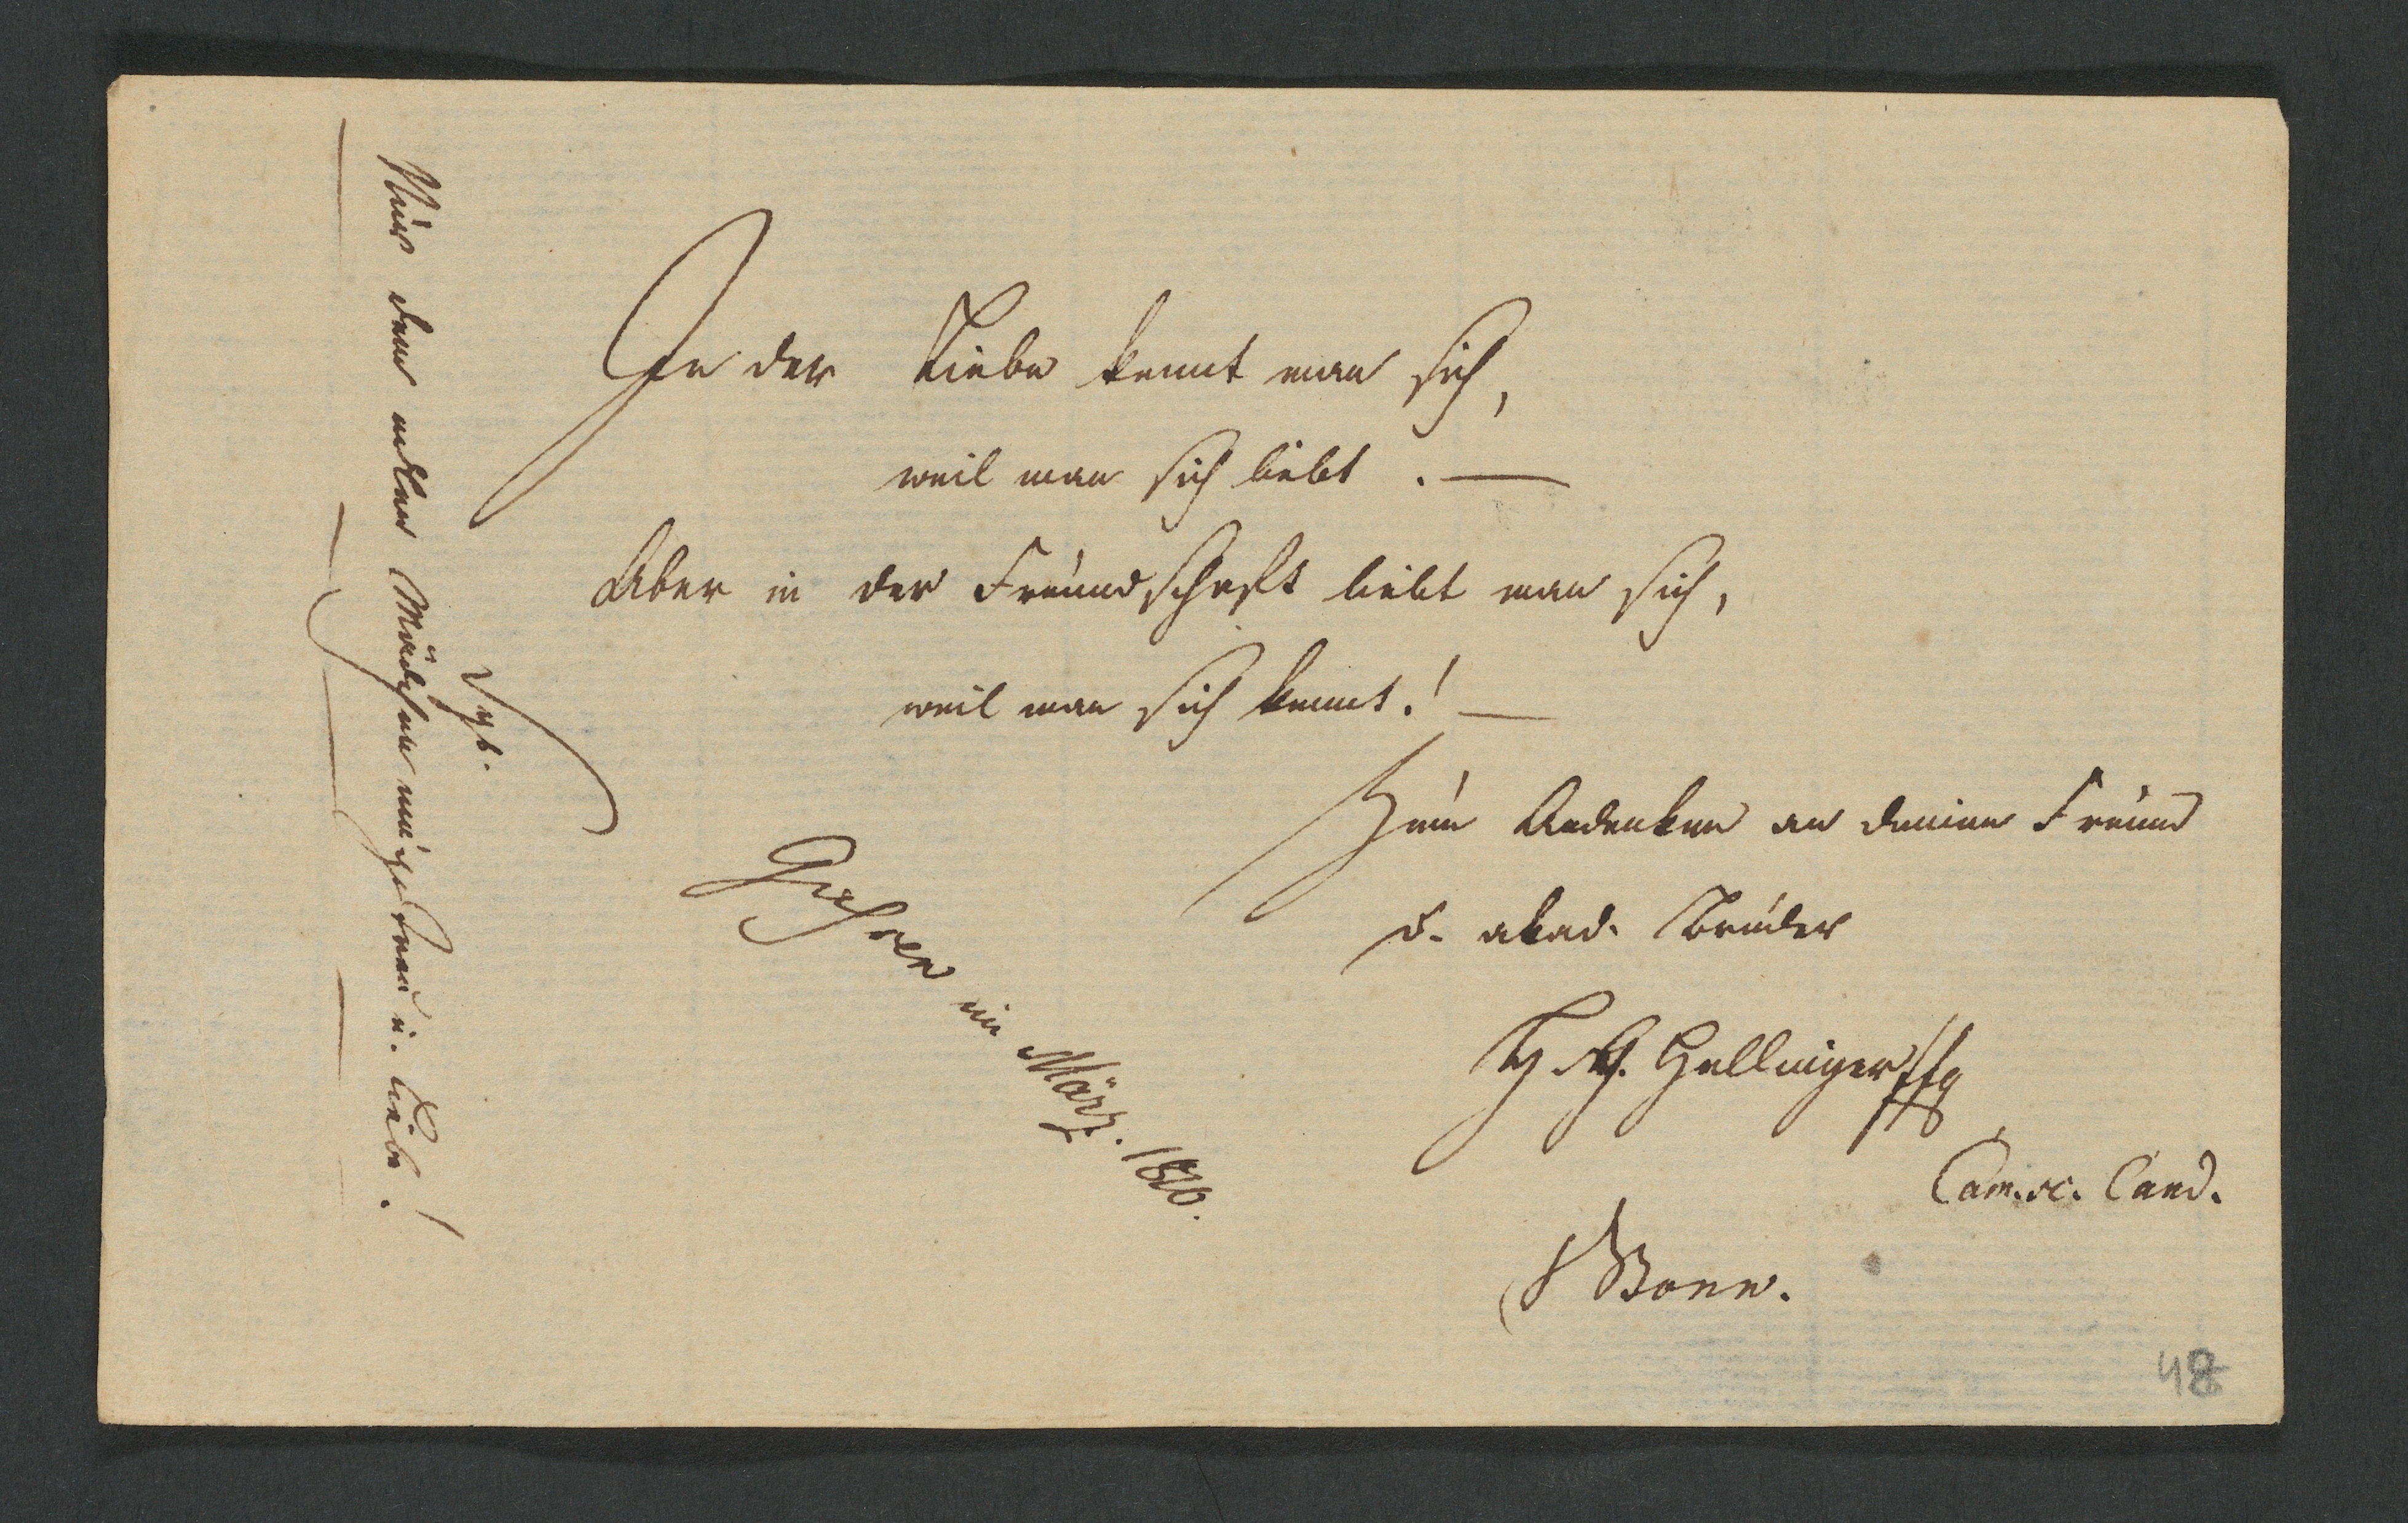 In der Liebe kennt man sich,
weil man sich liebt. —
Aber in der Freundschaft liebt man sich,
weil man sich kennt! —
Zum Andenken an deinen Freund
u. akad. Bruder
Hellinger
Cam. sc. Cand.
Bonn.
Gießen im März. 1820.
Nur dem edlen Mädchen unsre Treu u. Liebe!
48